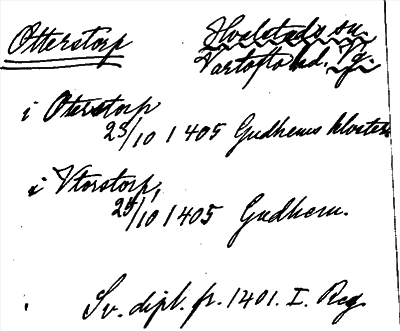 Otterstorp Hvalstads sn
Vartofta hd. Vg.
i Oterstorp
23/10 1405 Gudhems kloster
i Vtorstorp,
25/10 1405 Gudhem.
Sv. dipl. fr. 1401. I. Reg.